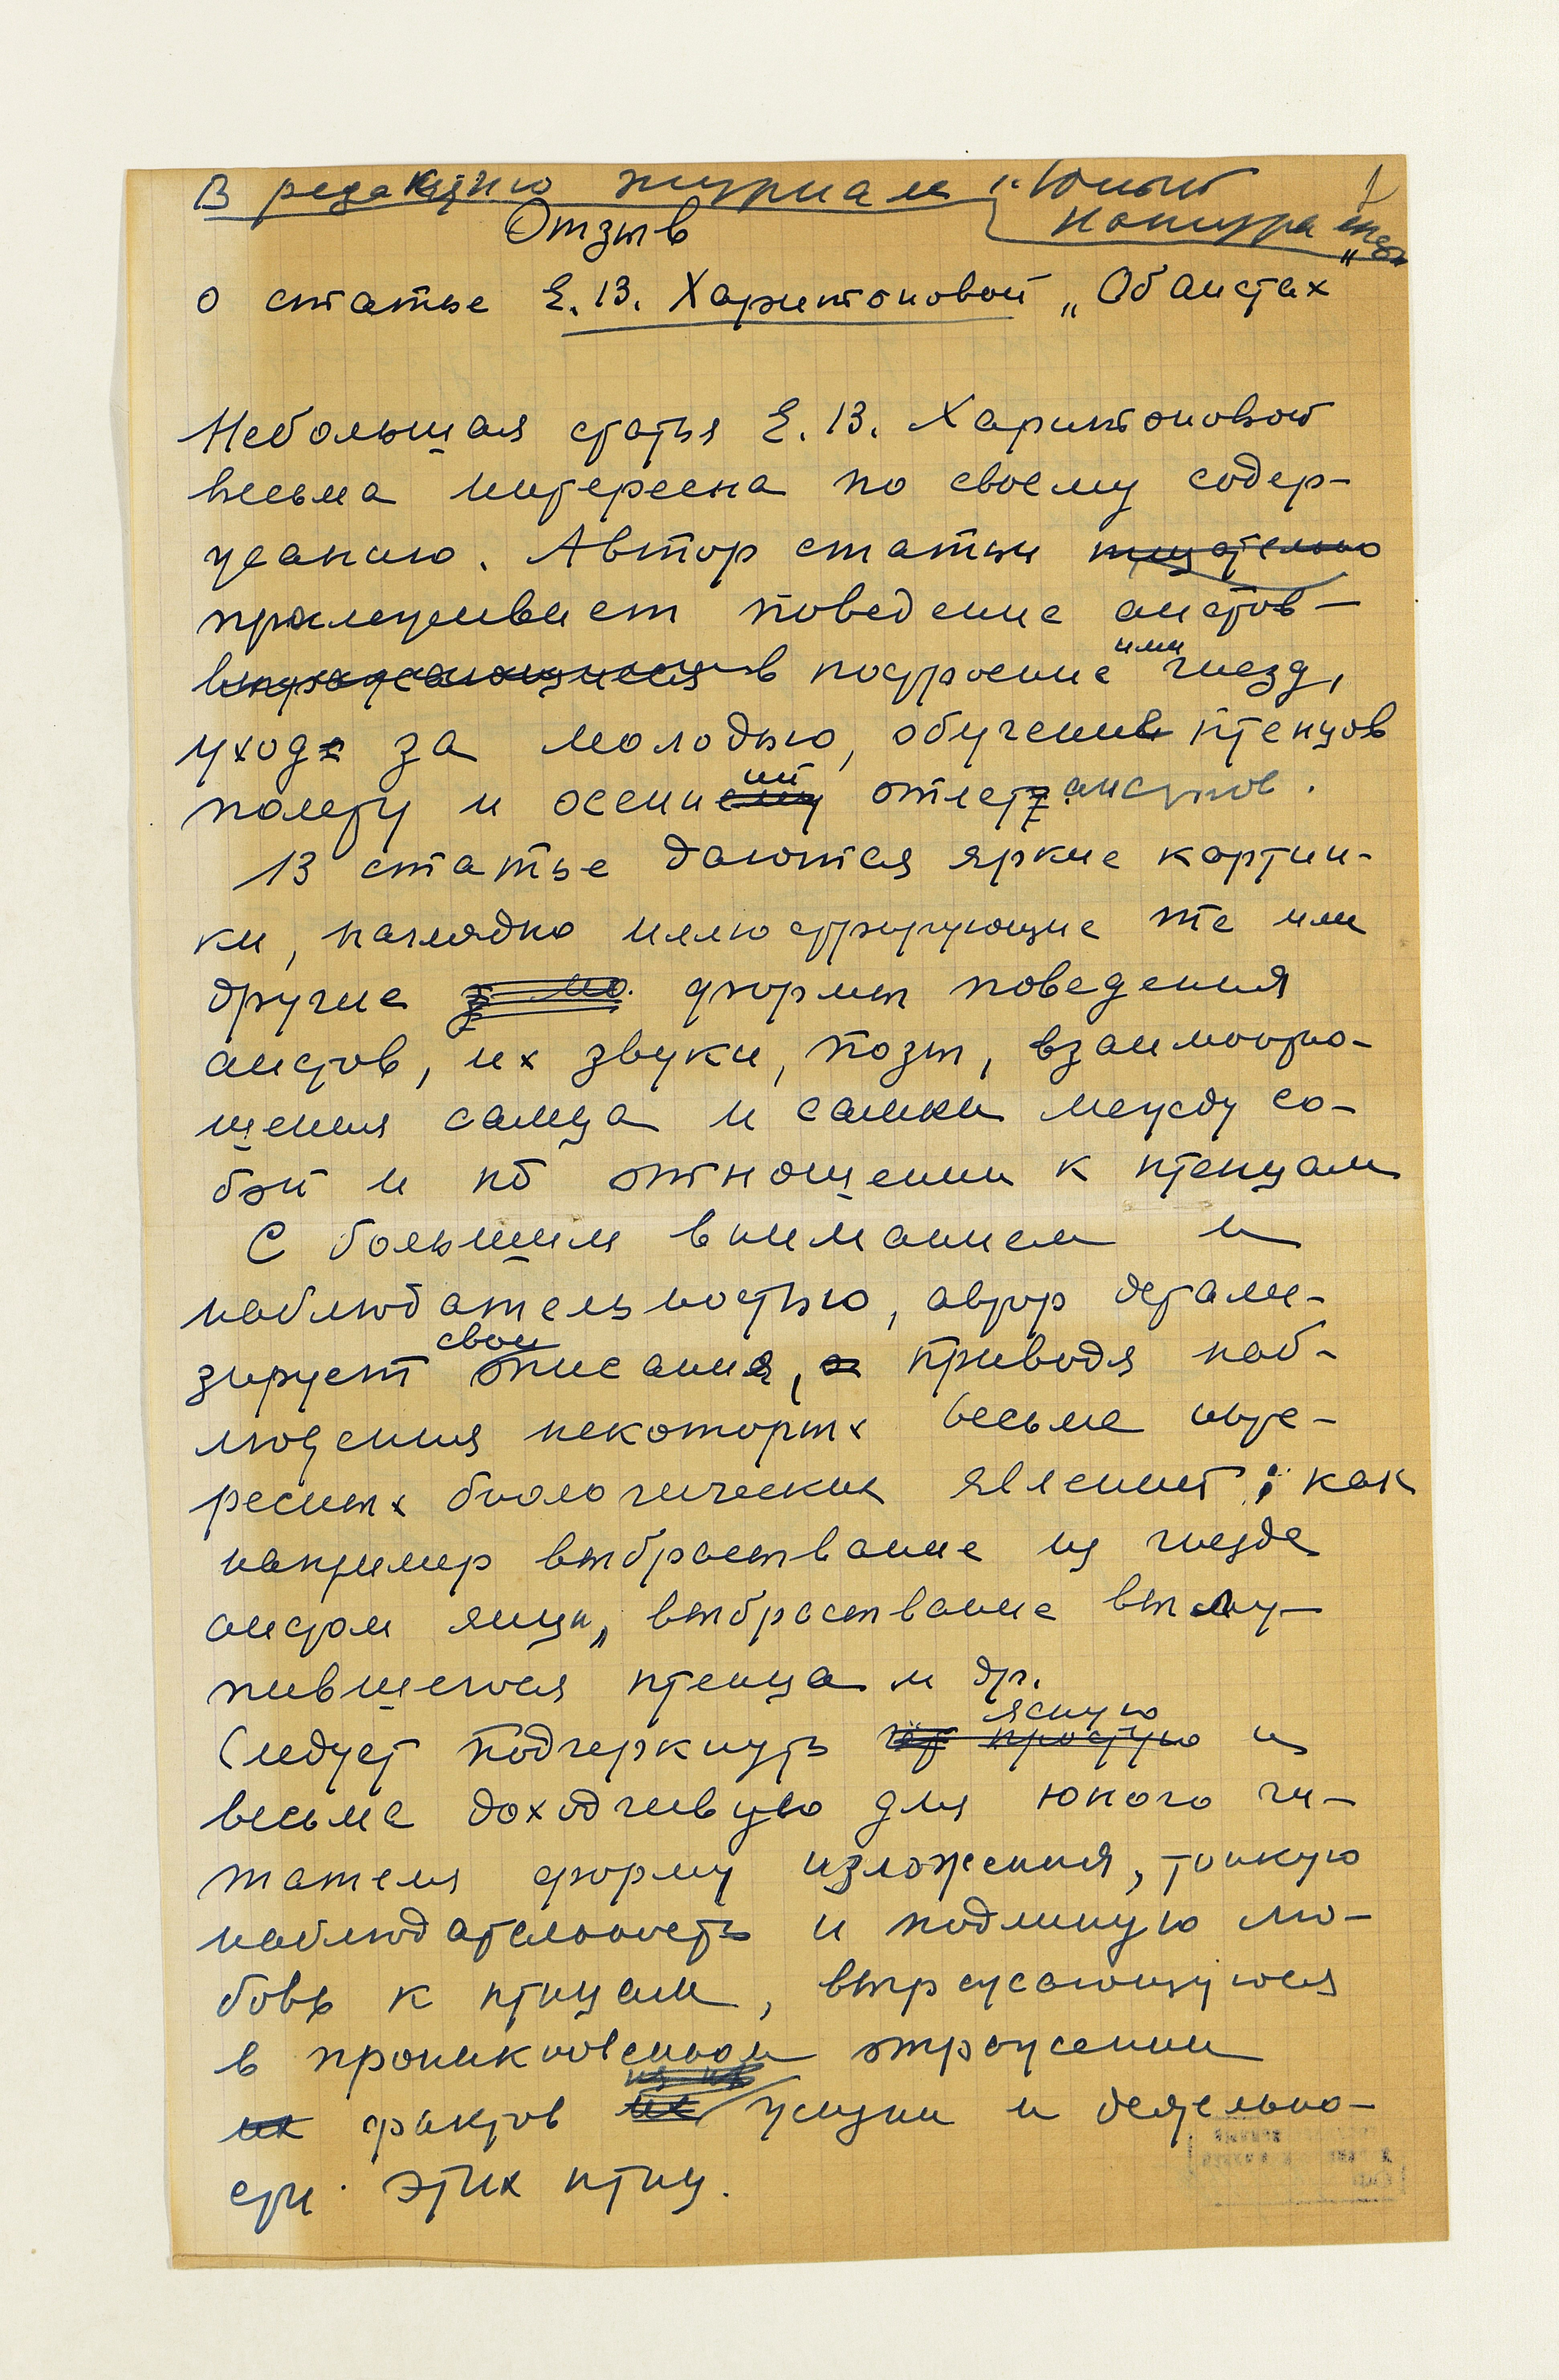 В редакцию журнала „Юный
натуралист"
Отзыв
о статье Е. В. Харитоновой „Об аистах
Небольшая статья Е. В. Харитоновой
весьма интересна по своему содер-
жанию. Автор статьи тщательно
прослеживает поведение аистов –
выражающееся в построение ими гнезд,
уход за молодью, обучение птенцов
полету и осенний отлет аистов.
В статье даются яркие картин-
ки, наглядно иллюстрирующие те или
другие формы поведения
аистов, их звуки, позы, взаимоотно-
шения самца и самки между со-
бой и по отношении к птенцам
С большим вниманием и
наблюдательностью, автор детали-
зирует свои описания, приводя наб-
людения некоторых весьма инте-
ресных биологических явлений; как
например выбрасывание из гнезда
аистом яиц, выбрасывание вылу-
пившегося птенца и др.
Следует подчеркнуть простую ясную и
весьма доходчивую для юного чи-
тателя форму изложения, тонкую
наблюдательность и подлинную лю-
бовь к птицам, выражающуюся
в проникновенном отражении
их фактов жизни и деятельно-
сти этих птиц.